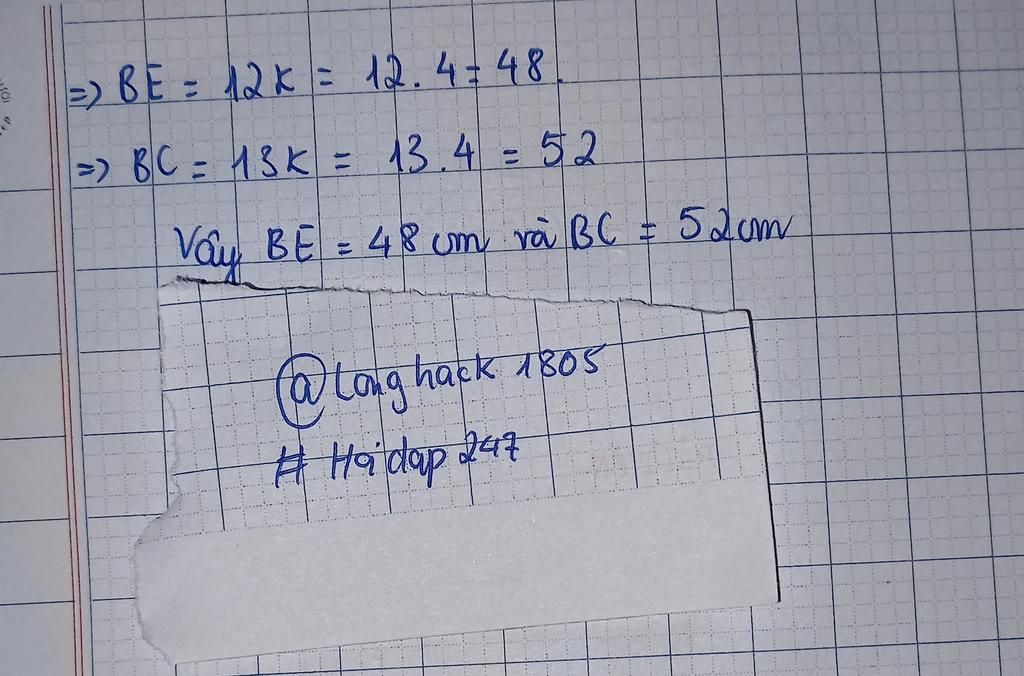 => BE = 12k = 12.4 = 48.
=> BC = 13k = 13.4 = 52
Vậy BE = 48 cm và BC = 52cm
@Longhack 1805
# Hỏi dap 247